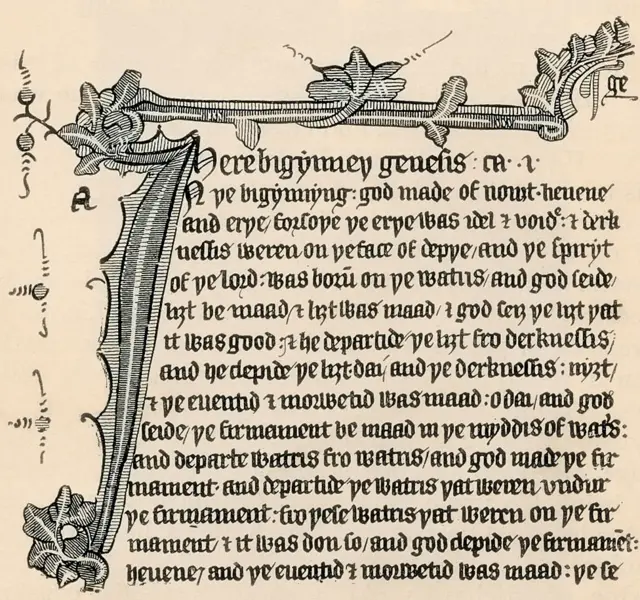 ge
Here bigẏnneþ genesis : ca · i ·
a
IN þe bigẏnnẏng : god made of nouȝt · heuene
and erþe / forsoþe þe erþe was idel ⁊ voide : ⁊ derk
nessis weren on þe face of depþe / and þe spirẏt
of þe lord : was borū on þe watris / and god seide /
liȝt be maad / ⁊ liȝt was maad / ⁊ god seiȝ þe liȝt þat
it was good : ⁊ he departide þe liȝt fro derknessis /
and he clepide þe liȝt dai / and þe derknessis : nẏȝt /
⁊ þe euentid ⁊ morwetid was maad : o dai / and god
seide / þe firmament be maad in þe mẏddis of wat̉s :
and departe watris fro watris / and god made þe fir
mament · and departide þe watris þat weren vndur
þe firmament : fro þese watris þat weren on þe fir
mament / ⁊ it was don so / and god clepide þe firmamēt :
heuene / and þe euentid ⁊ morwetid was maad : þe se